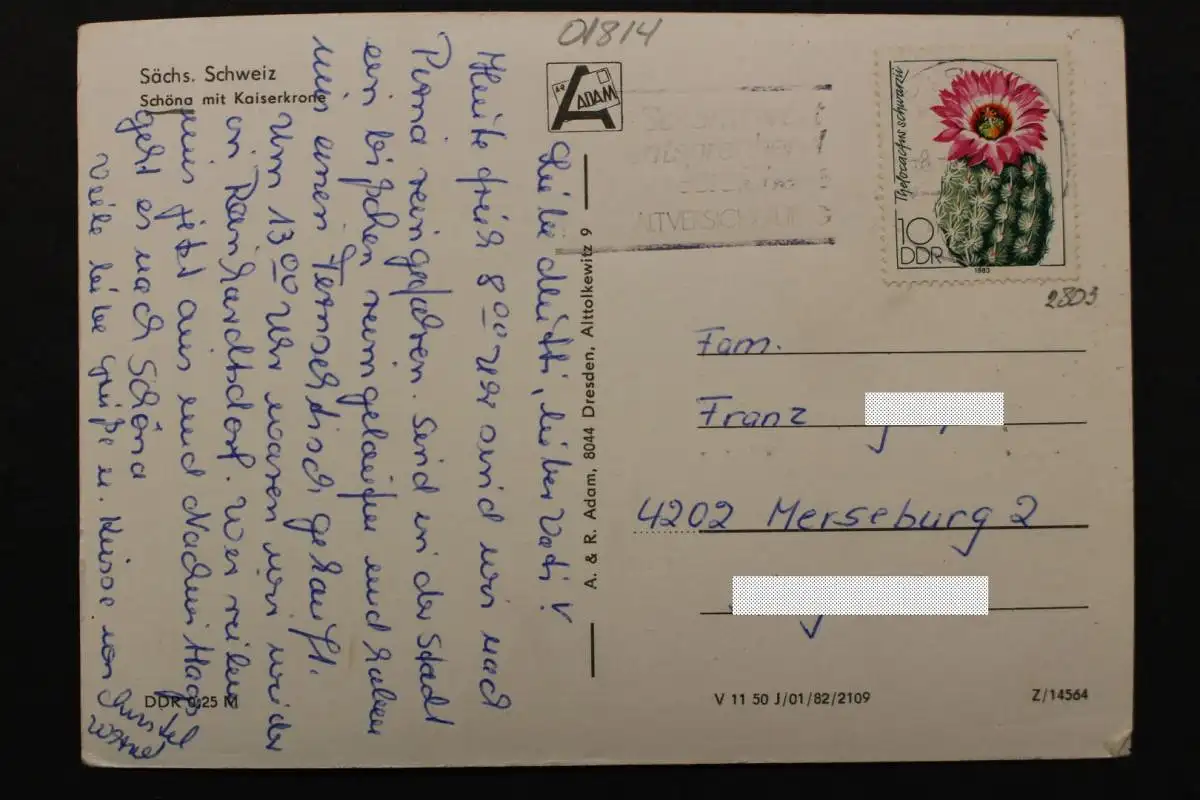 01814
Sächs. Schweiz
Schöna mit Kaiserkrone
ADAM
Liebe Mutti, lieber Vati!
Heute früh 8⁰⁰ Uhr sind wir nach
Pirna reingefahren. Sind in der Stadt
ein bißchen rumgelaufen und haben
uns einen Fernsehtisch gekauft.
Um 13⁰⁰ Uhr waren wir wieder
in Reinhardtsdorf. Wir
uns jetzt aus und Nachmittags
geht es nach Schöna
Viele liebe Grüße u. Küsse von
A. & R. Adam, 8044 Dresden, Alttolkewitz 9
ALTVERSICHERUNG
Thelocactus schwarzii
10
DDR
1983
2803
Fam.
Franz
4202 Merseburg 2
DDR 0,25 M
V 11 50 J/01/82/2109
Z/14564